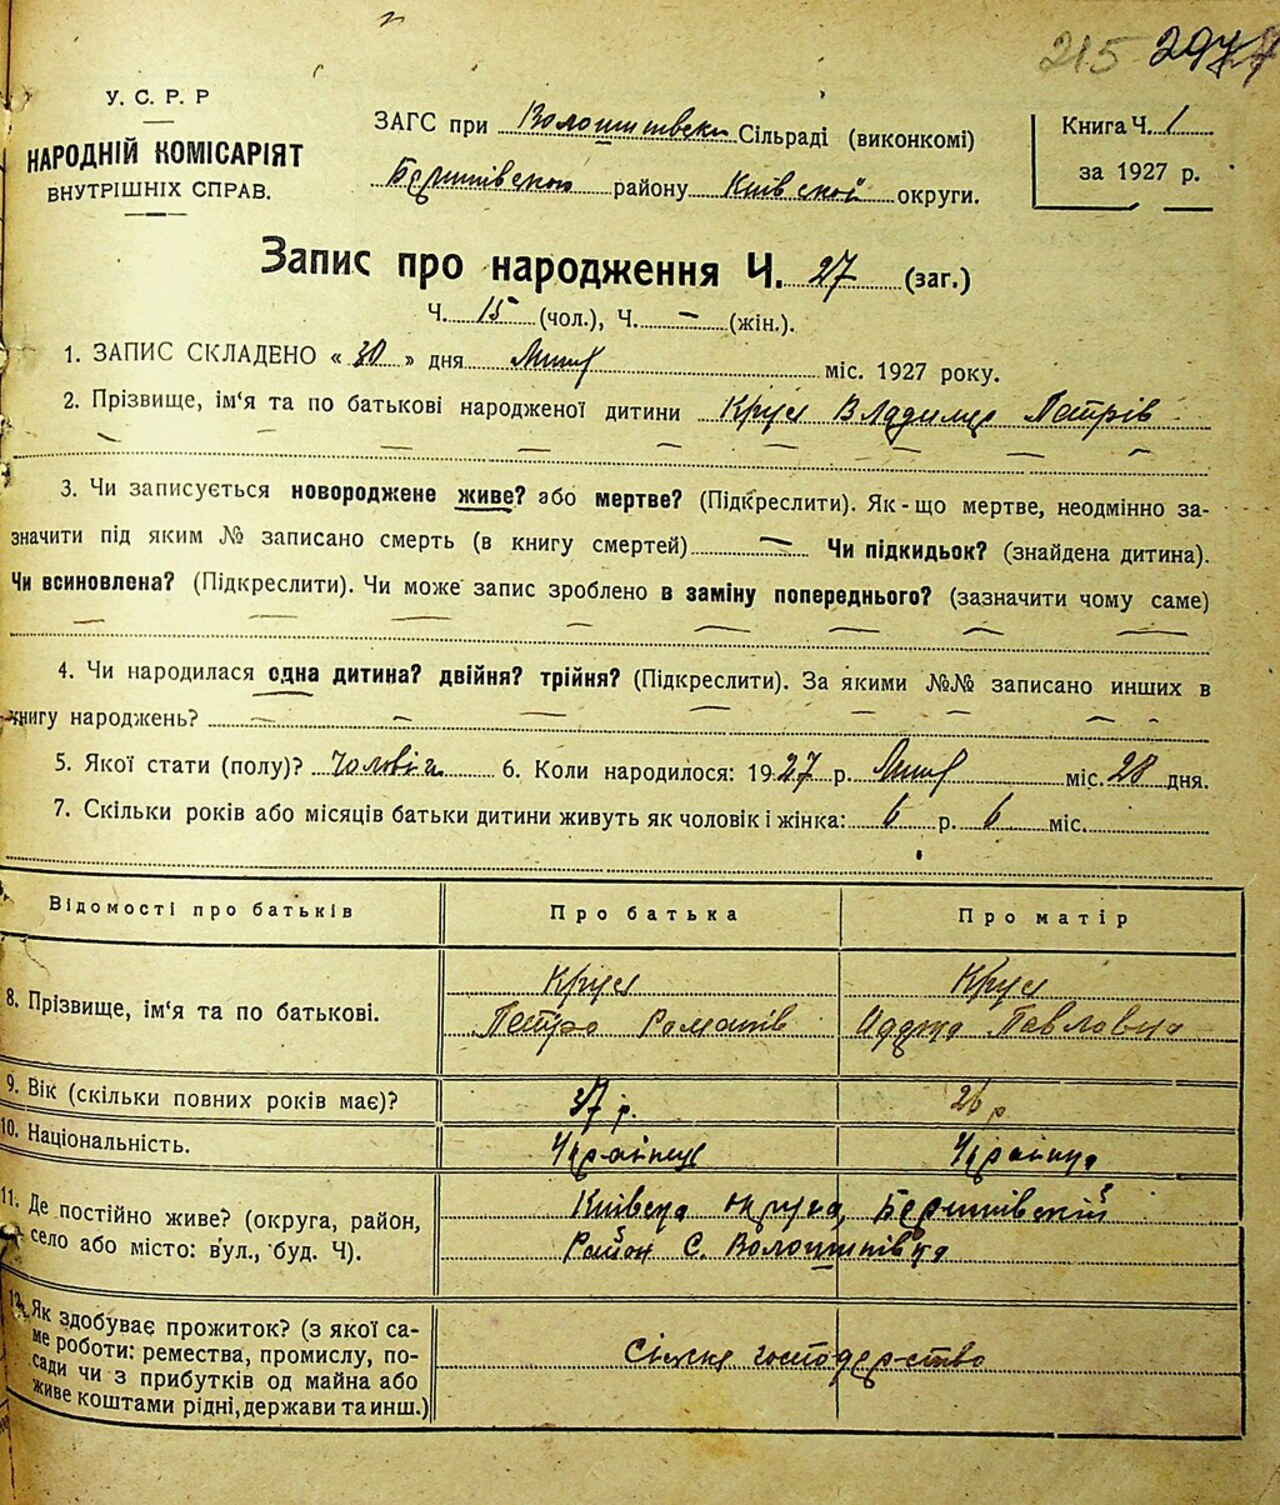 215 2974
У. С. Р. Р
НАРОДНІЙ КОМІСАРІЯТ
ВНУТРІШНІХ СПРАВ.
ЗАГС при Волошинівськ Сільраді (виконкомі)
району Київської округи.
Книга Ч. 1
за 1927 р.
Запис про народження Ч. 27 (заг.)
Ч. 15 (чол.), Ч. — (жін.).
1. ЗАПИС СКЛАДЕНО « 30 » дня міс. 1927 року.
2. Прізвище, ім'я та по батькові народженої дитини Владимир Петрів
3. Чи записується новороджене живе? або мертве? (Підкреслити). Як-що мертве, неодмінно за-
значити під яким № записано смерть (в книгу смертей) — Чи підкидьок? (знайдена дитина).
Чи всиновлена? (Підкреслити). Чи може запис зроблено в заміну попереднього? (зазначити чому саме)
4. Чи народилася одна дитина? двійня? трійня? (Підкреслити). За якими №№ записано инших в
книгу народжень?
5. Якої стати (полу)? 6. Коли народилося: 1927 р. міс. 28 дня.
7. Скільки років або місяців батьки дитини живуть як чоловік і жінка: 6 р. 6 міс.
Відомості про батьків
Про батька
Про матір
8. Прізвище, ім'я та по батькові.
Петро Романів
Павловна
9. Вік (скільки повних років має)?
37 р.
26 р
10. Національність.
Українец
Українка
11. Де постійно живе? (округа, район,
село або місто: вул., буд. Ч).
Київска округа,
Район С. Волошинівка
12. Як здобуває прожиток? (з якої са-
ме роботи: ремества, промислу, по-
сади чи з прибутків од майна або
живе коштами рідні, держави та инш.)
Сільske господарство